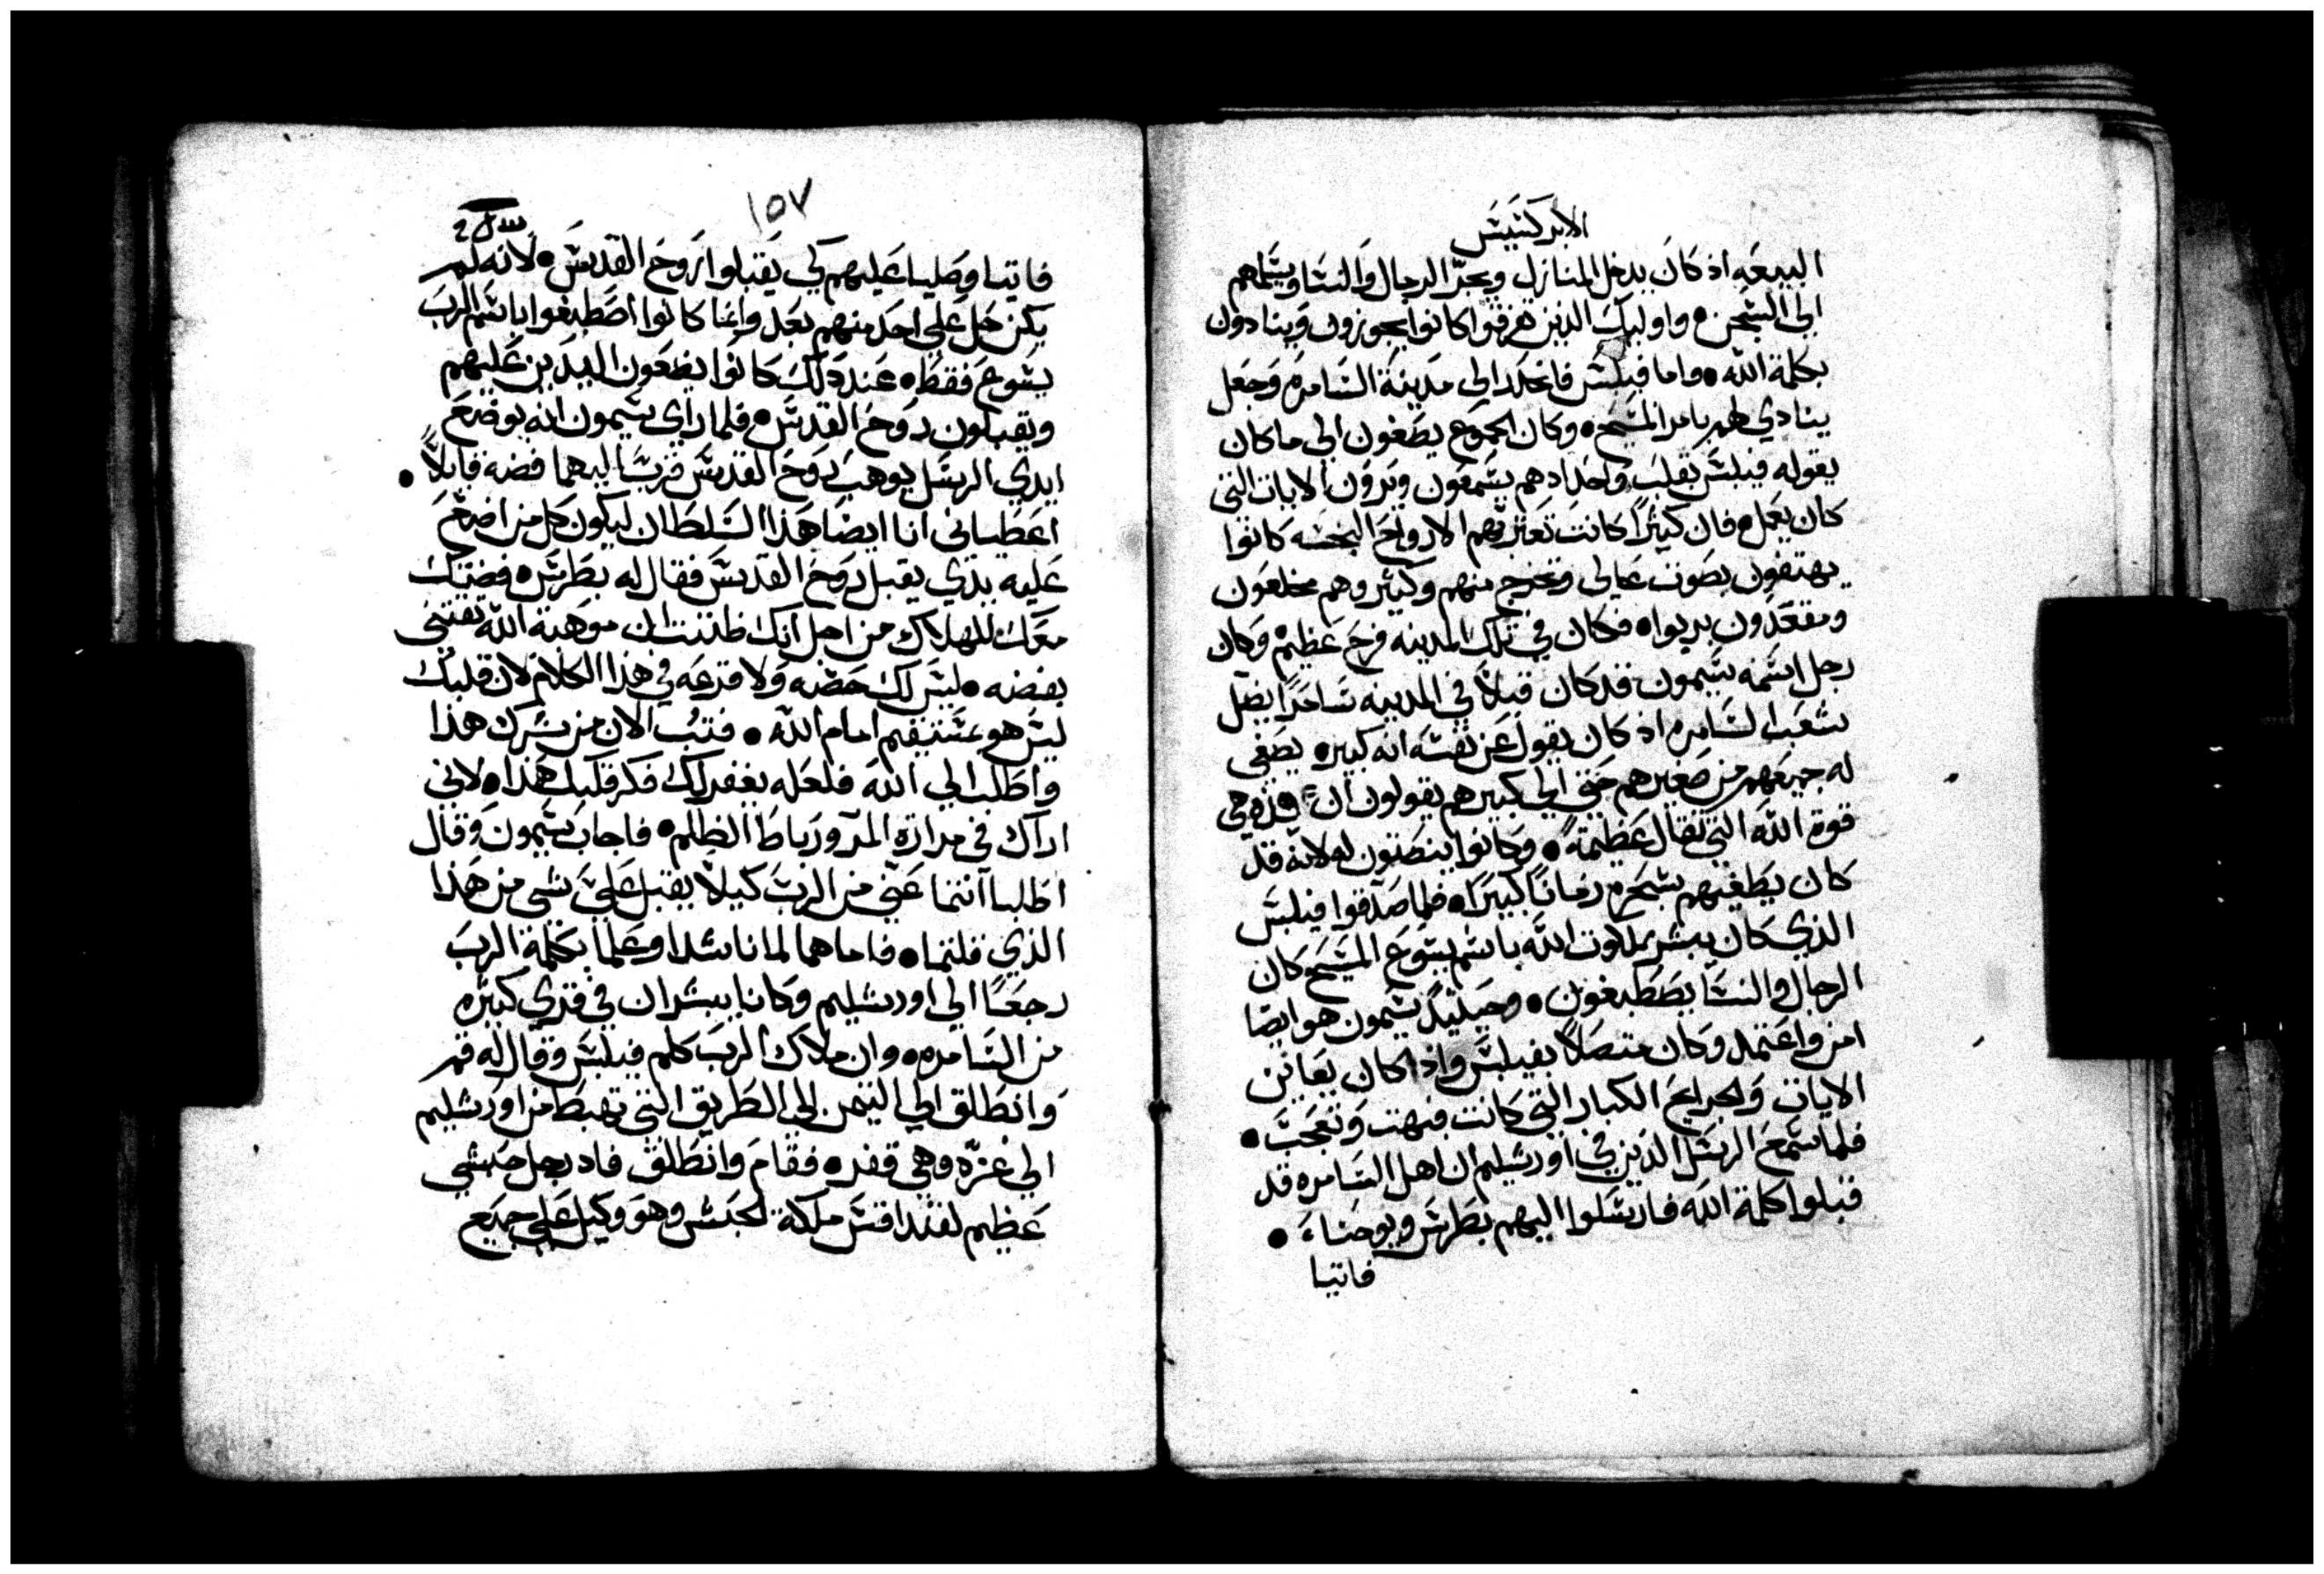 الابركسيس
البيعه اذ كان يدخل المنازل ويجر الرجال والنسا ويسلمهم
الى السجن • واوليك الذين هرقوا كانوا يجوزون وينادون
بكلمة الله • واما فيلبس فانحدر الى مدينة السامره وجعل
ينادي لهم بامر المسيح • وكان الجموع يصغون الى ما كان
يقوله فيلبس بقلب واحد اذ هم يسمعون ويرون الايات التي
كان يعمل • فان كثيرًا كانت تعتريهم الارواح النجسه كانوا
يهتفون بصوت عالى وتخرج منهم وكثير وهم مخلعون
ومقعدون بريوا • فكان في تلك المدينه فرح عظيم • وكان
رجل اسمه سيمون قد كان قبلاً في المدينه ساحرًا يضل
شعب السامره اذ كان يقول عن نفسه انه كبير • يصغى
له جميعهم من صغيرهم حتي الي كبيرهم يقولون ان هذه هي
قوة الله التي تقال عظيمة • وكانوا ينصتون له لانه قد
كان يطغيهم بسحره زمانًا كبيرًا • فلما صدقوا فيلبس
الذي كان يبشر بملكوت الله باسم يسوع المسيح كان
الرجال والنسا يصطبغون • وحينيذٍ سيمون هو ايضا
امن واعتمد وكان متصلاً بفيلبس واذا كان يعاين
الايات والجرايح الكبار التي كانت فبهت وتعجب •
فلما سمع الرسل الذين في اورشليم ان اهل السامره قد
قبلوا كلمة الله فارسلوا اليهم بطرس ويوحنا •
فاتيا
١٥٧
فاتيا وصليا عليهم لكي يقبلوا روح القدس • لانه لم
يكن حل علي احد منهم بعد وانما كانوا اصطبغوا باسم الرب
يسوع فقط • عند ذلك كانوا يضعون اليدين عليهم
ويقبلون روح القدس • فلما راي سيمون انه بوضع
ايدي الرسل يوهب روح القدس قرب اليهما فضه قايلاً •
اعطياني انا ايضا هذا السلطان ليكون كل من اضع
عليه يدي يقبل روح القدس فقال له بطرس • فضتك
معك للهلاك من اجل انك ظننت ان موهبة الله تقتني
بفضه • ليس لك حصه ولا قرعه في هذا الكلام لان قلبك
ليس هو مستقيم امام الله • فتب الان من شرك هذا
واطلب الي الله فلعله يغفر لك فكر قلبك هذا • لاني
اراك في مرارة المر ورباط الظلم • فاجاب سيمون وقال
اطلبا انتما عني من الرب كيلا يقبل علي شي من هذا
الذي قلتما • فاما هما لما ناشدا وعلما بكلمة الرب
رجعا الي اورشليم وكانا يبشران في قري كثيره
من السامره • وان ملاك الرب كلم فيلبس وقال له قم
وانطلق الي التيمن الى الطريق التي تهبط من اورشليم
الي غزه وهي قفره • فقام وانطلق فاد رجل حبشي
عظيم لقنداقس ملكة الحبش وهو وكيل علي جميع